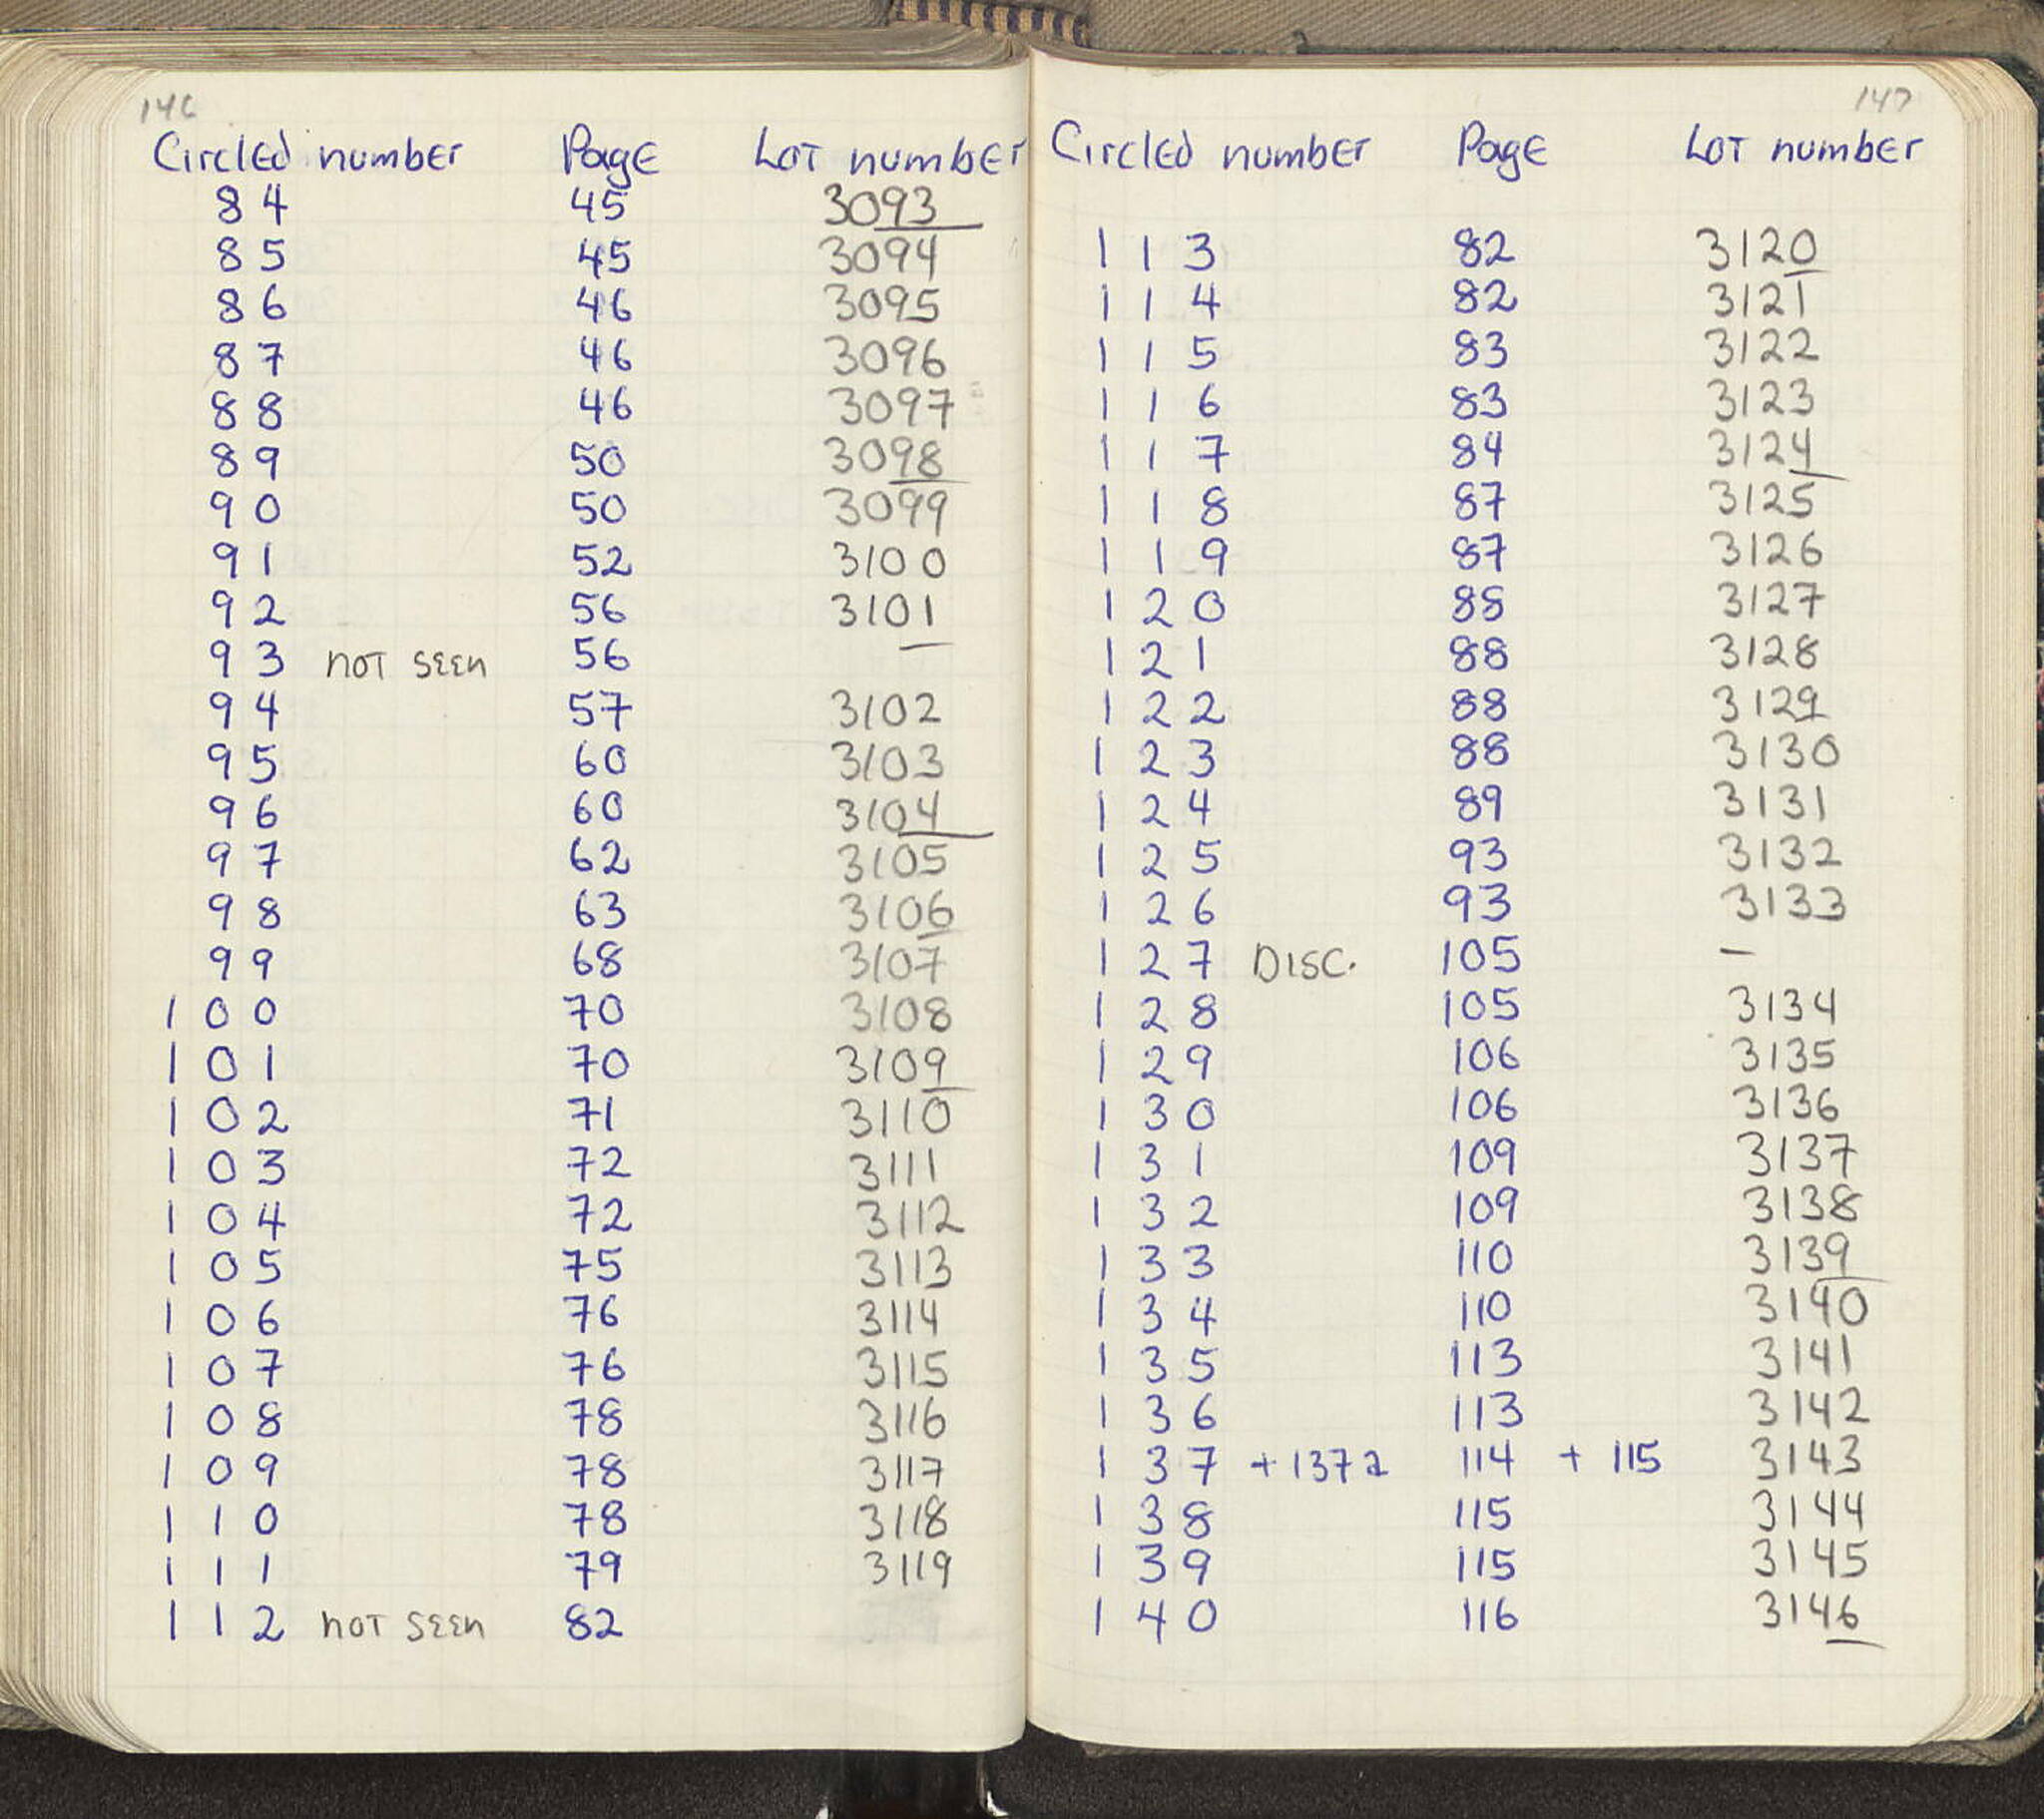 146
Circled number Page Lot number
84 45 3093
85 45 3094
86 46 3095
87 46 3096
88 46 3097
89 50 3098
90 50 3099
91 52 3100
92 56 3101
93 not seen 56 —
94 57 3102
95 60 3103
96 60 3104
97 62 3105
98 63 3106
99 68 3107
100 70 3108
101 70 3109
102 71 3110
103 72 3111
104 72 3112
105 75 3113
106 76 3114
107 76 3115
108 78 3116
109 78 3117
110 78 3118
111 79 3119
112 not seen 82
147
Circled number Page Lot number
113 82 3120
114 82 3121
115 83 3122
116 83 3123
117 84 3124
118 87 3125
119 87 3126
120 88 3127
121 88 3128
122 88 3129
123 88 3130
124 89 3131
125 93 3132
126 93 3133
127 DISC. 105 –
128 105 3134
129 106 3135
130 106 3136
131 109 3137
132 109 3138
133 110 3139
134 110 3140
135 113 3141
136 113 3142
137 + 137a 114 + 115 3143
138 115 3144
139 115 3145
140 116 3146